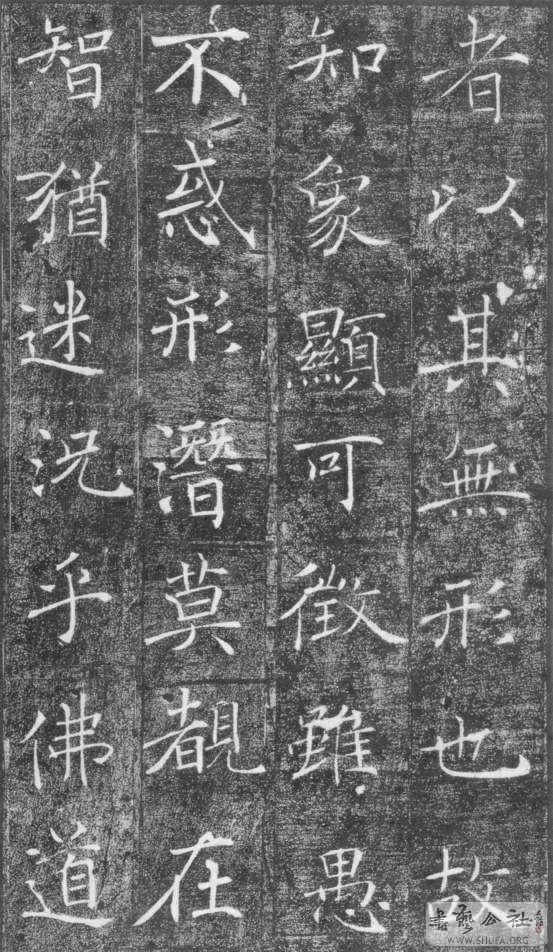 者以其無形也故
知象顯可徵雖愚
不惑形潛莫覩在
智猶迷況乎佛道
書藝公社
WWW.SHUFA.ORG